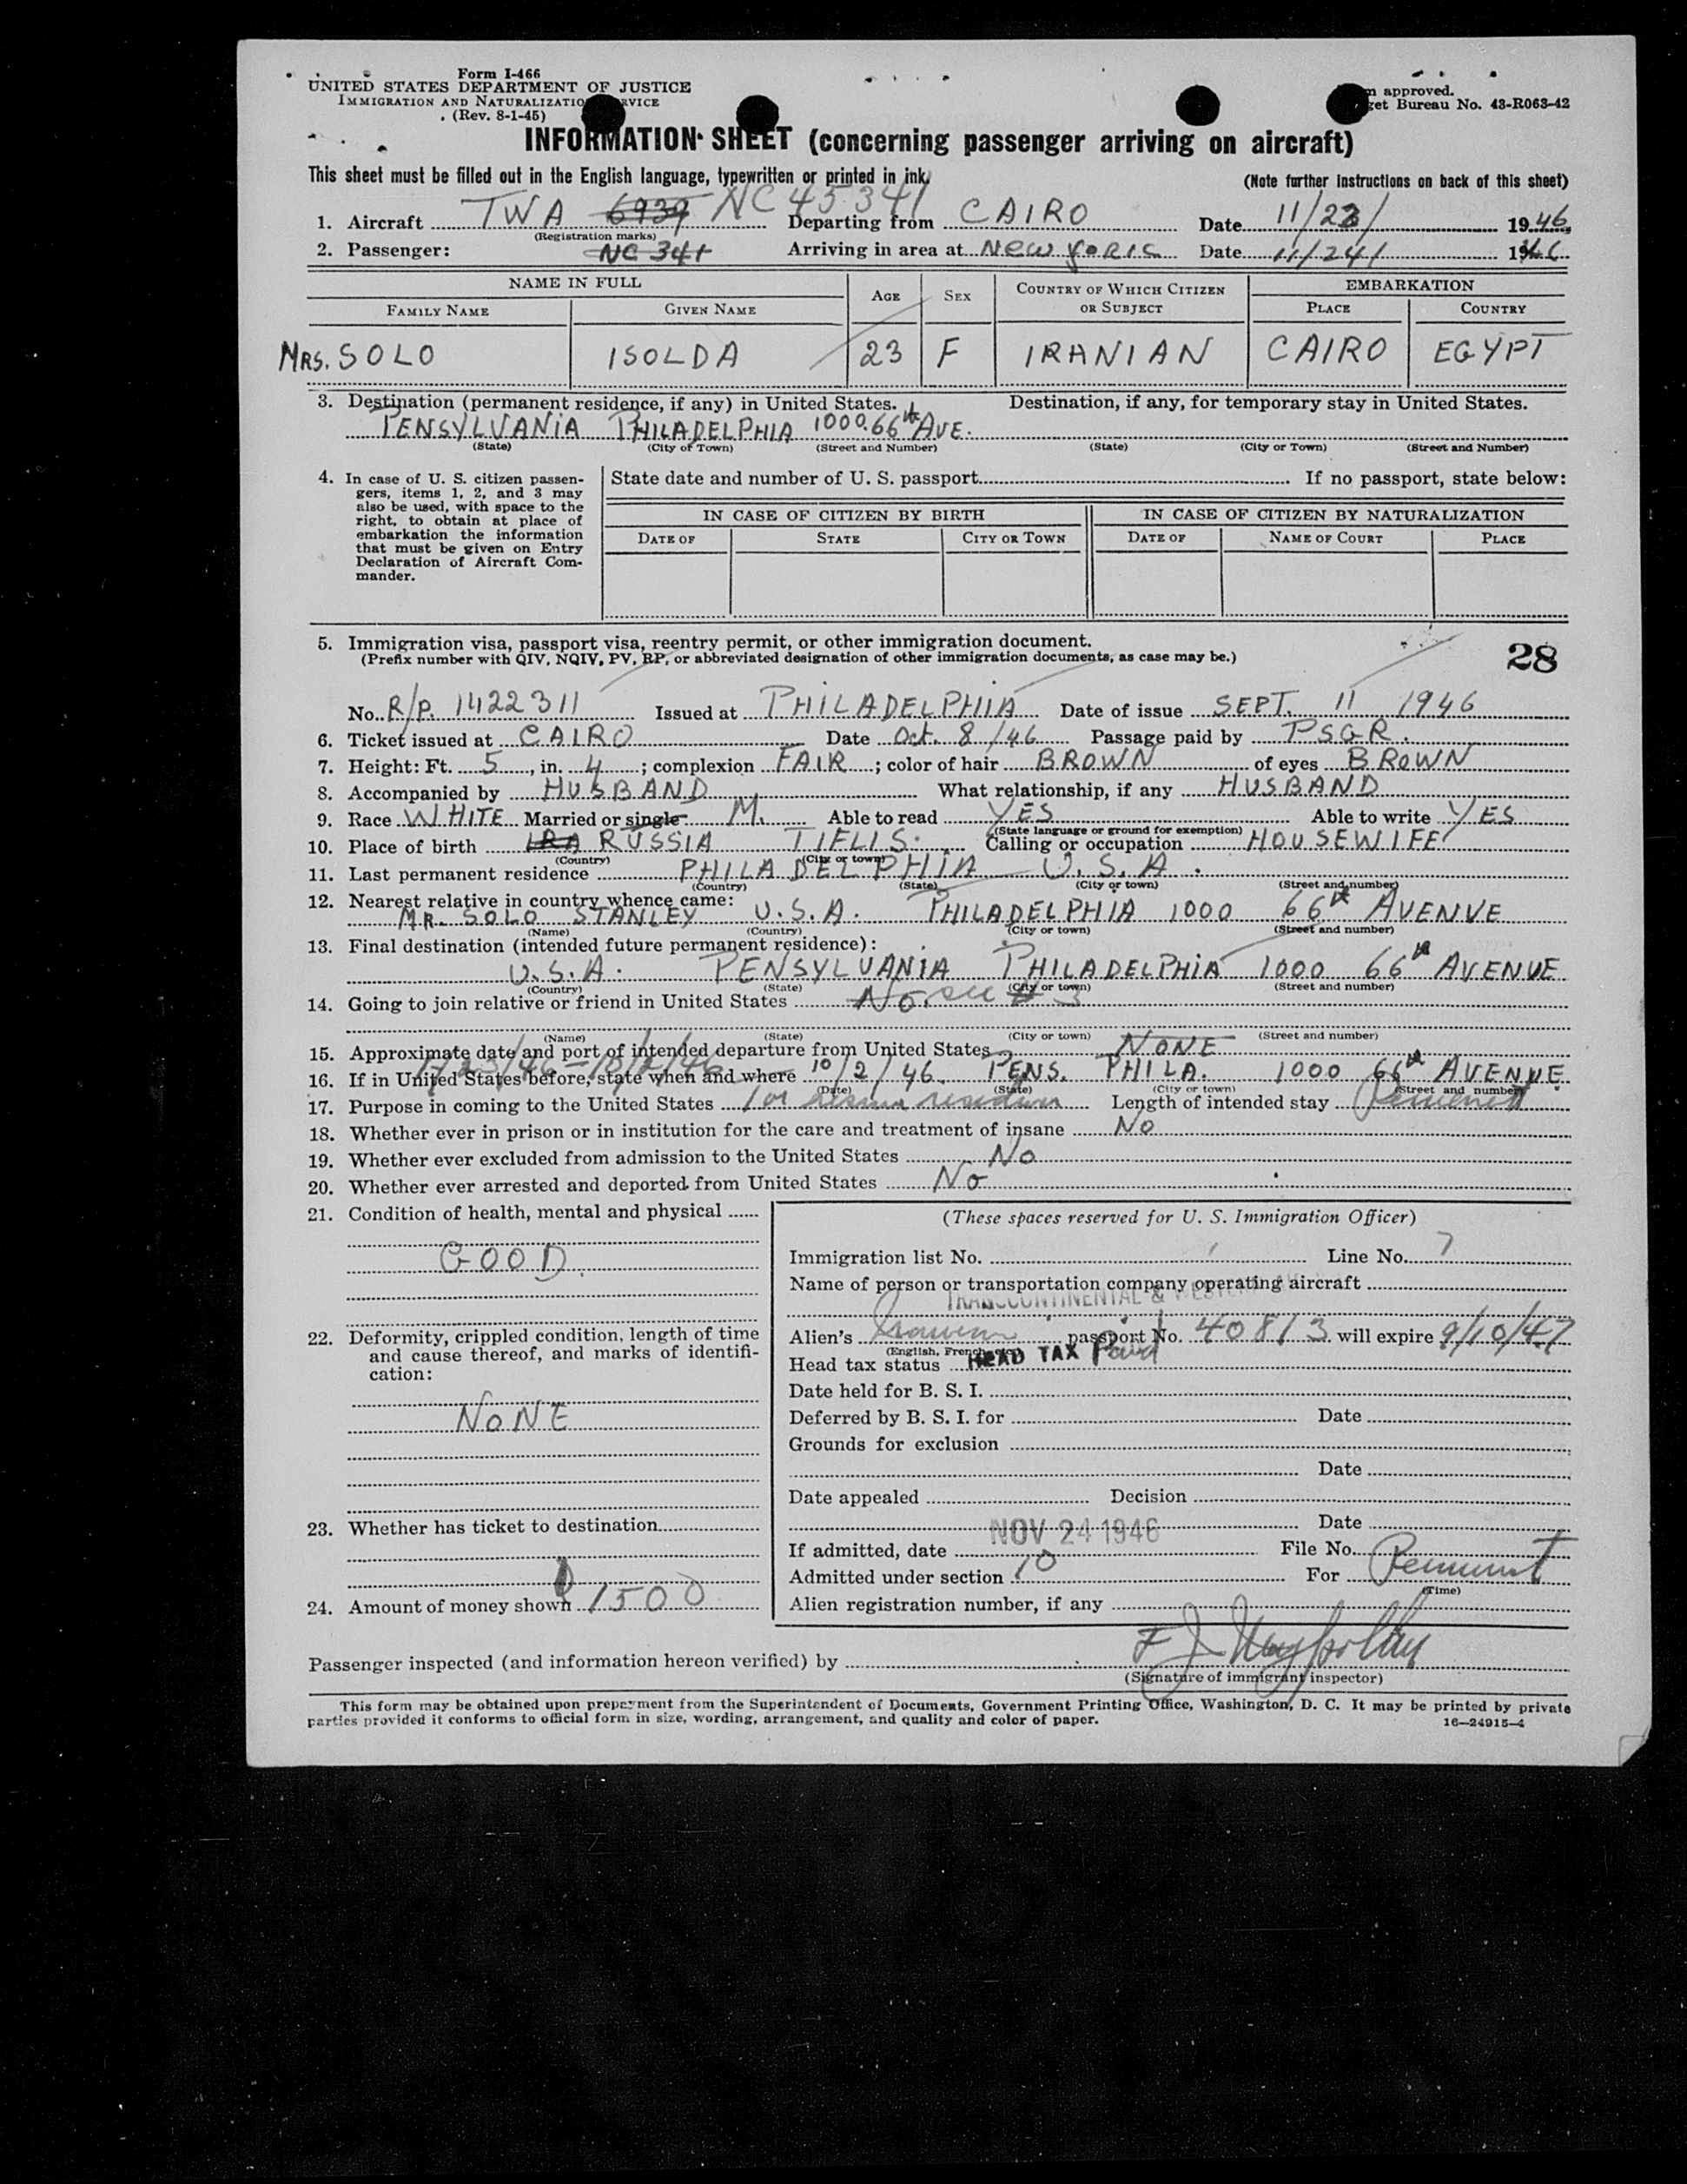 Form I-466
UNITED STATES DEPARTMENT OF JUSTICE
IMMIGRATION AND NATURALIZATION SERVICE
(Rev. 8-1-45)
approved.
Bureau No. 43-R063-42
INFORMATION SHEET (concerning passenger arriving on aircraft)
This sheet must be filled out in the English language, typewritten or printed in ink.
(Note further instructions on back of this sheet)
1. Aircraft TWA 6939 NC 45341 Departing from CAIRO Date 11/23/ 1946
(Registration marks)
2. Passenger: NC 341 Arriving in area at NEW YORK Date 11/24/ 1946
NAME IN FULL
AGE SEX COUNTRY OF WHICH CITIZEN OR SUBJECT EMBARKATION
FAMILY NAME GIVEN NAME PLACE COUNTRY
MRS. SOLO ISOLDA 23 F IRANIAN CAIRO EGYPT
3. Destination (permanent residence, if any) in United States. Destination, if any, for temporary stay in United States.
PENSYLVANIA PHILADELPHIA 1000.66th AVE.
(State) (City of Town) (Street and Number) (State) (City or Town) (Street and Number)
4. In case of U. S. citizen passengers, items 1, 2, and 3 may also be used, with space to the right, to obtain at place of embarkation the information that must be given on Entry Declaration of Aircraft Commander.
State date and number of U. S. passport If no passport, state below:
IN CASE OF CITIZEN BY BIRTH IN CASE OF CITIZEN BY NATURALIZATION
DATE OF STATE CITY OR TOWN DATE OF NAME OF COURT PLACE
5. Immigration visa, passport visa, reentry permit, or other immigration document.
(Prefix number with QIV, NQIV, PV, RP, or abbreviated designation of other immigration documents, as case may be.)
28
No. R/P. 1422311 Issued at PHILADELPHIA Date of issue SEPT. 11 1946
6. Ticket issued at CAIRO Date Oct. 8/46 Passage paid by PSGR.
7. Height: Ft. 5, in. 4; complexion FAIR; color of hair BROWN of eyes BROWN
8. Accompanied by HUSBAND What relationship, if any HUSBAND
9. Race WHITE Married or single M. Able to read YES Able to write YES
(State language or ground for exemption)
10. Place of birth IRA RUSSIA TIFLIS. Calling or occupation HOUSEWIFE
(Country) (City or town)
11. Last permanent residence PHILADELPHIA U.S.A.
(Country) (State) (City or town) (Street and number)
12. Nearest relative in country whence came:
MR. SOLO STANLEY U.S.A. PHILADELPHIA 1000 66th AVENUE
(Name) (Country) (City or town) (Street and number)
13. Final destination (intended future permanent residence):
U.S.A. PENSYLVANIA PHILADELPHIA 1000 66th AVENUE
(Country) (State) (City or town) (Street and number)
14. Going to join relative or friend in United States No. see # 3
(Name) (State) (City or town) (Street and number)
15. Approximate date and port of intended departure from United States NONE
16. If in United States before, state when and where 10/2/46. PENS. PHILA. 1000 66th AVENUE
(Date) (State) (City or town) (Street and number)
17. Purpose in coming to the United States Length of intended stay
18. Whether ever in prison or in institution for the care and treatment of insane No
19. Whether ever excluded from admission to the United States No
20. Whether ever arrested and deported from United States No
21. Condition of health, mental and physical
GOOD.
22. Deformity, crippled condition, length of time and cause thereof, and marks of identification:
NONE
23. Whether has ticket to destination
24. Amount of money shown 1500
(These spaces reserved for U. S. Immigration Officer)
Immigration list No. Line No. 7
Name of person or transportation company operating aircraft
TRANSCONTINENTAL &
Alien's passport No. 40813 will expire 9/10/47
Head tax status HEAD TAX Paid
Date held for B. S. I.
Deferred by B. S. I. for Date
Grounds for exclusion
Date
Date appealed Decision
Date
If admitted, date NOV 24 1946 File No.
Admitted under section 10 For
(Time)
Alien registration number, if any
Passenger inspected (and information hereon verified) by
(Signature of immigrant inspector)
This form may be obtained upon prepayment from the Superintendent of Documents, Government Printing Office, Washington, D. C. It may be printed by private
parties provided it conforms to official form in size, wording, arrangement, and quality and color of paper.
16—24915-4